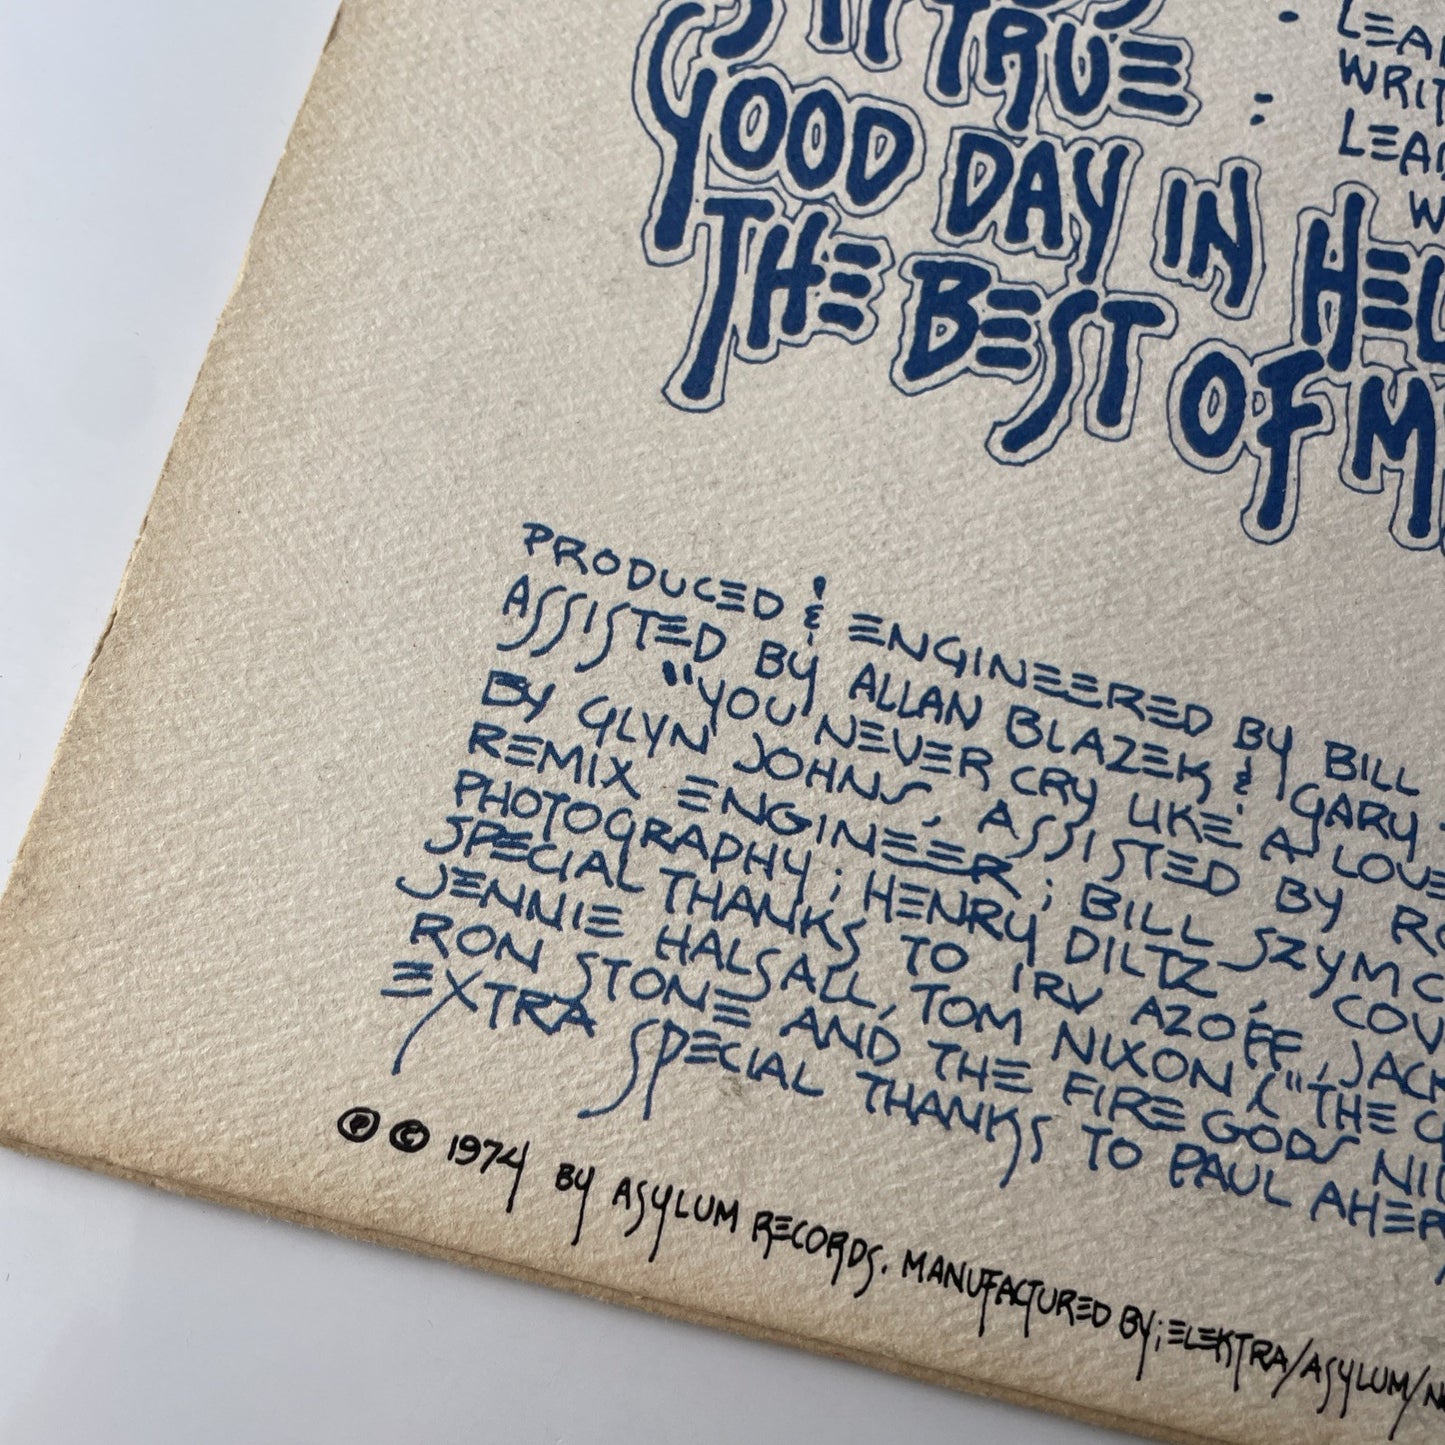 IS IT TRUE
GOOD DAY IN HEL
THE BEST OF M
LEA
WRIT
LEA
W
PRODUCED & ENGINEERED BY BILL
ASSISTED BY ALLAN BLAZEK & GARY
"YOU NEVER CRY LIKE A LOVE
BY GLYN JOHNS, ASSISTED BY RO
REMIX ENGINEER; BILL SZYMC
PHOTOGRAPHY; HENRY DILTZ, COV
SPECIAL THANKS TO IRV AZOFF, JACK
JENNIE HALSALL, TOM NIXON ("THE
RON STONE AND THE FIRE GODS NI
EXTRA SPECIAL THANKS TO PAUL AHER
Ⓟ © 1974 BY ASYLUM RECORDS. MANUFACTURED BY; ELEKTRA/ASYLUM/N